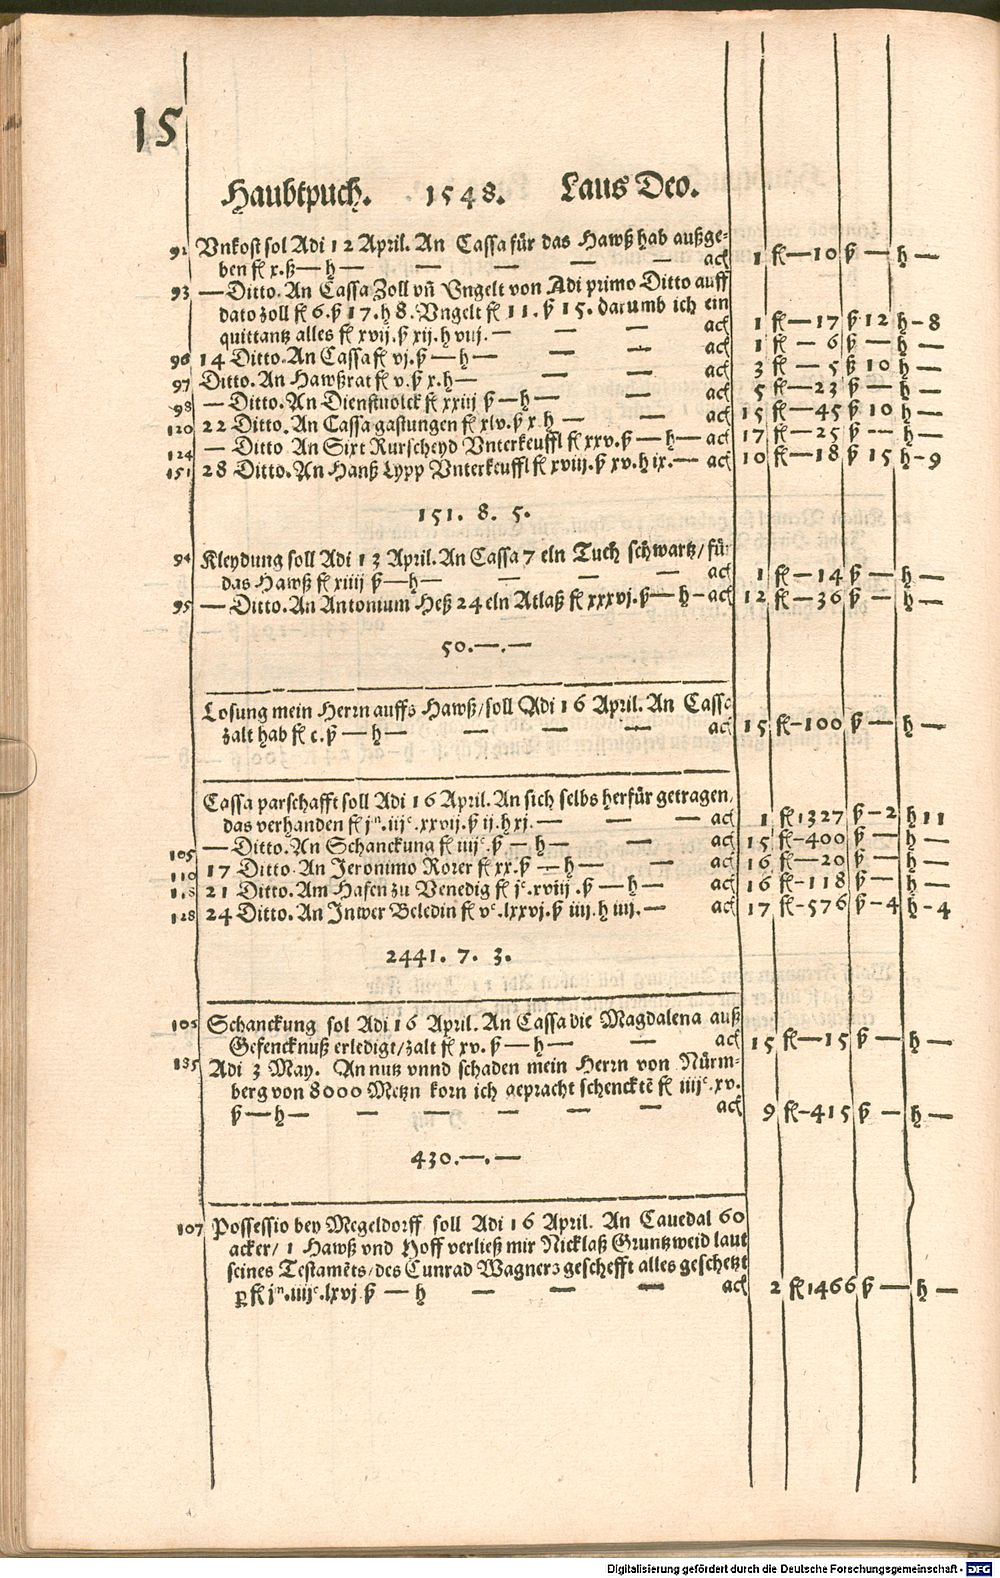 15
Haubtpuch. 1548. Laus Deo.
92 Vnkost sol Adi 12 April. An Cassa für das Hawß hab außge-
ben fl x.ß — h — — — — — ad 1 fl — 10 ß — h —
93 — Ditto. An Cassa Zoll vñ Vngelt von Adi primo Ditto auff
dato zoll fl 6. ß 17. h 8. Vngelt fl 11. ß 15. darumb ich ein
quittantz alles fl xvij. ß xij. h viij. — — — ad 1 fl — 17 ß 12 h - 8
96 14 Ditto. An Cassa fl vj. ß — h — — — ad 1 fl — 6 ß — h —
97 Ditto. An Hawßrat fl v. ß x. h — — — ad 3 fl — 5 ß 10 h —
98 — Ditto. An Dienstuolck fl xxiij ß — h — — ad 5 fl — 23 ß — h —
120 22 Ditto. An Cassa gastungen fl xlv. ß x h — — ad 15 fl — 45 ß 10 h —
124 — Ditto An Sixt Rurscheyd Vnterkeuffl fl xxv. ß — h — ad 17 fl — 25 ß — h —
151 28 Ditto. An Hanß Lypp Vnterkeuffl fl xviij. ß xv. h ix. — ad 10 fl — 18 ß 15 h - 9
151. 8. 5.
94 Kleydung soll Adi 13 April. An Cassa 7 eln Tuch schwartz / für
das Hawß fl xiiij ß — h — — — — ad 1 fl — 14 ß — h —
95 — Ditto. An Antonium Heß 24 eln Atlaß fl xxxvj. ß — h - ad 12 fl — 36 ß — h —
50. —. —
Losung mein Herrn auffs Hawß / soll Adi 16 April. An Cassa
zalt hab fl c. ß — h — — — — ad 15 fl - 100 ß — h —
Cassa parschafft soll Adi 16 April. An sich selbs herfür getragen,
das verhanden fl jm. iijc. xxvij. ß ij. h xj. — — — ad 1 fl 1327 ß - 2 h 11
105 — Ditto. An Schanckung fl iiijc. ß — h — — ad 15 fl - 400 ß — h —
110 17 Ditto. An Jeronimo Rorer fl xx. ß — h — — ad 16 fl — 20 ß — h —
118 21 Ditto. Am Hafen zu Venedig fl jc. xviij. ß — h — ad 16 fl - 118 ß — h —
128 24 Ditto. An Inwer Beledin fl vc. lxxvj. ß iiij. h iiij. — ad 17 fl - 576 ß - 4 h - 4
2441. 7. 3.
105 Schanckung sol Adi 16 April. An Cassa die Magdalena auß
Gefencknuß erledigt / zalt fl xv. ß — h — — ad 15 fl — 15 ß — h —
135 Adi 3 May. An nutz vnnd schaden mein Herrn von Nürm-
berg von 8000 Metzn korn ich gepracht schencktē fl iiijc. xv.
ß — h — — — — — — ad 9 fl - 415 ß — h —
430. —. —
107 Possessio bey Megeldorff soll Adi 16 April. An Cauedal 60
acker / 1 Hawß vnd Hoff verließ mir Nicklaß Gruntzweid laut
seines Testamēts / des Cunrad Wagners geschefft alles geschetzt
ꝑ fl jm. iiijc. lxvj ß — h — — — ad 2 fl 1466 ß — h —
Digitalisierung gefördert durch die Deutsche Forschungsgemeinschaft - DFG